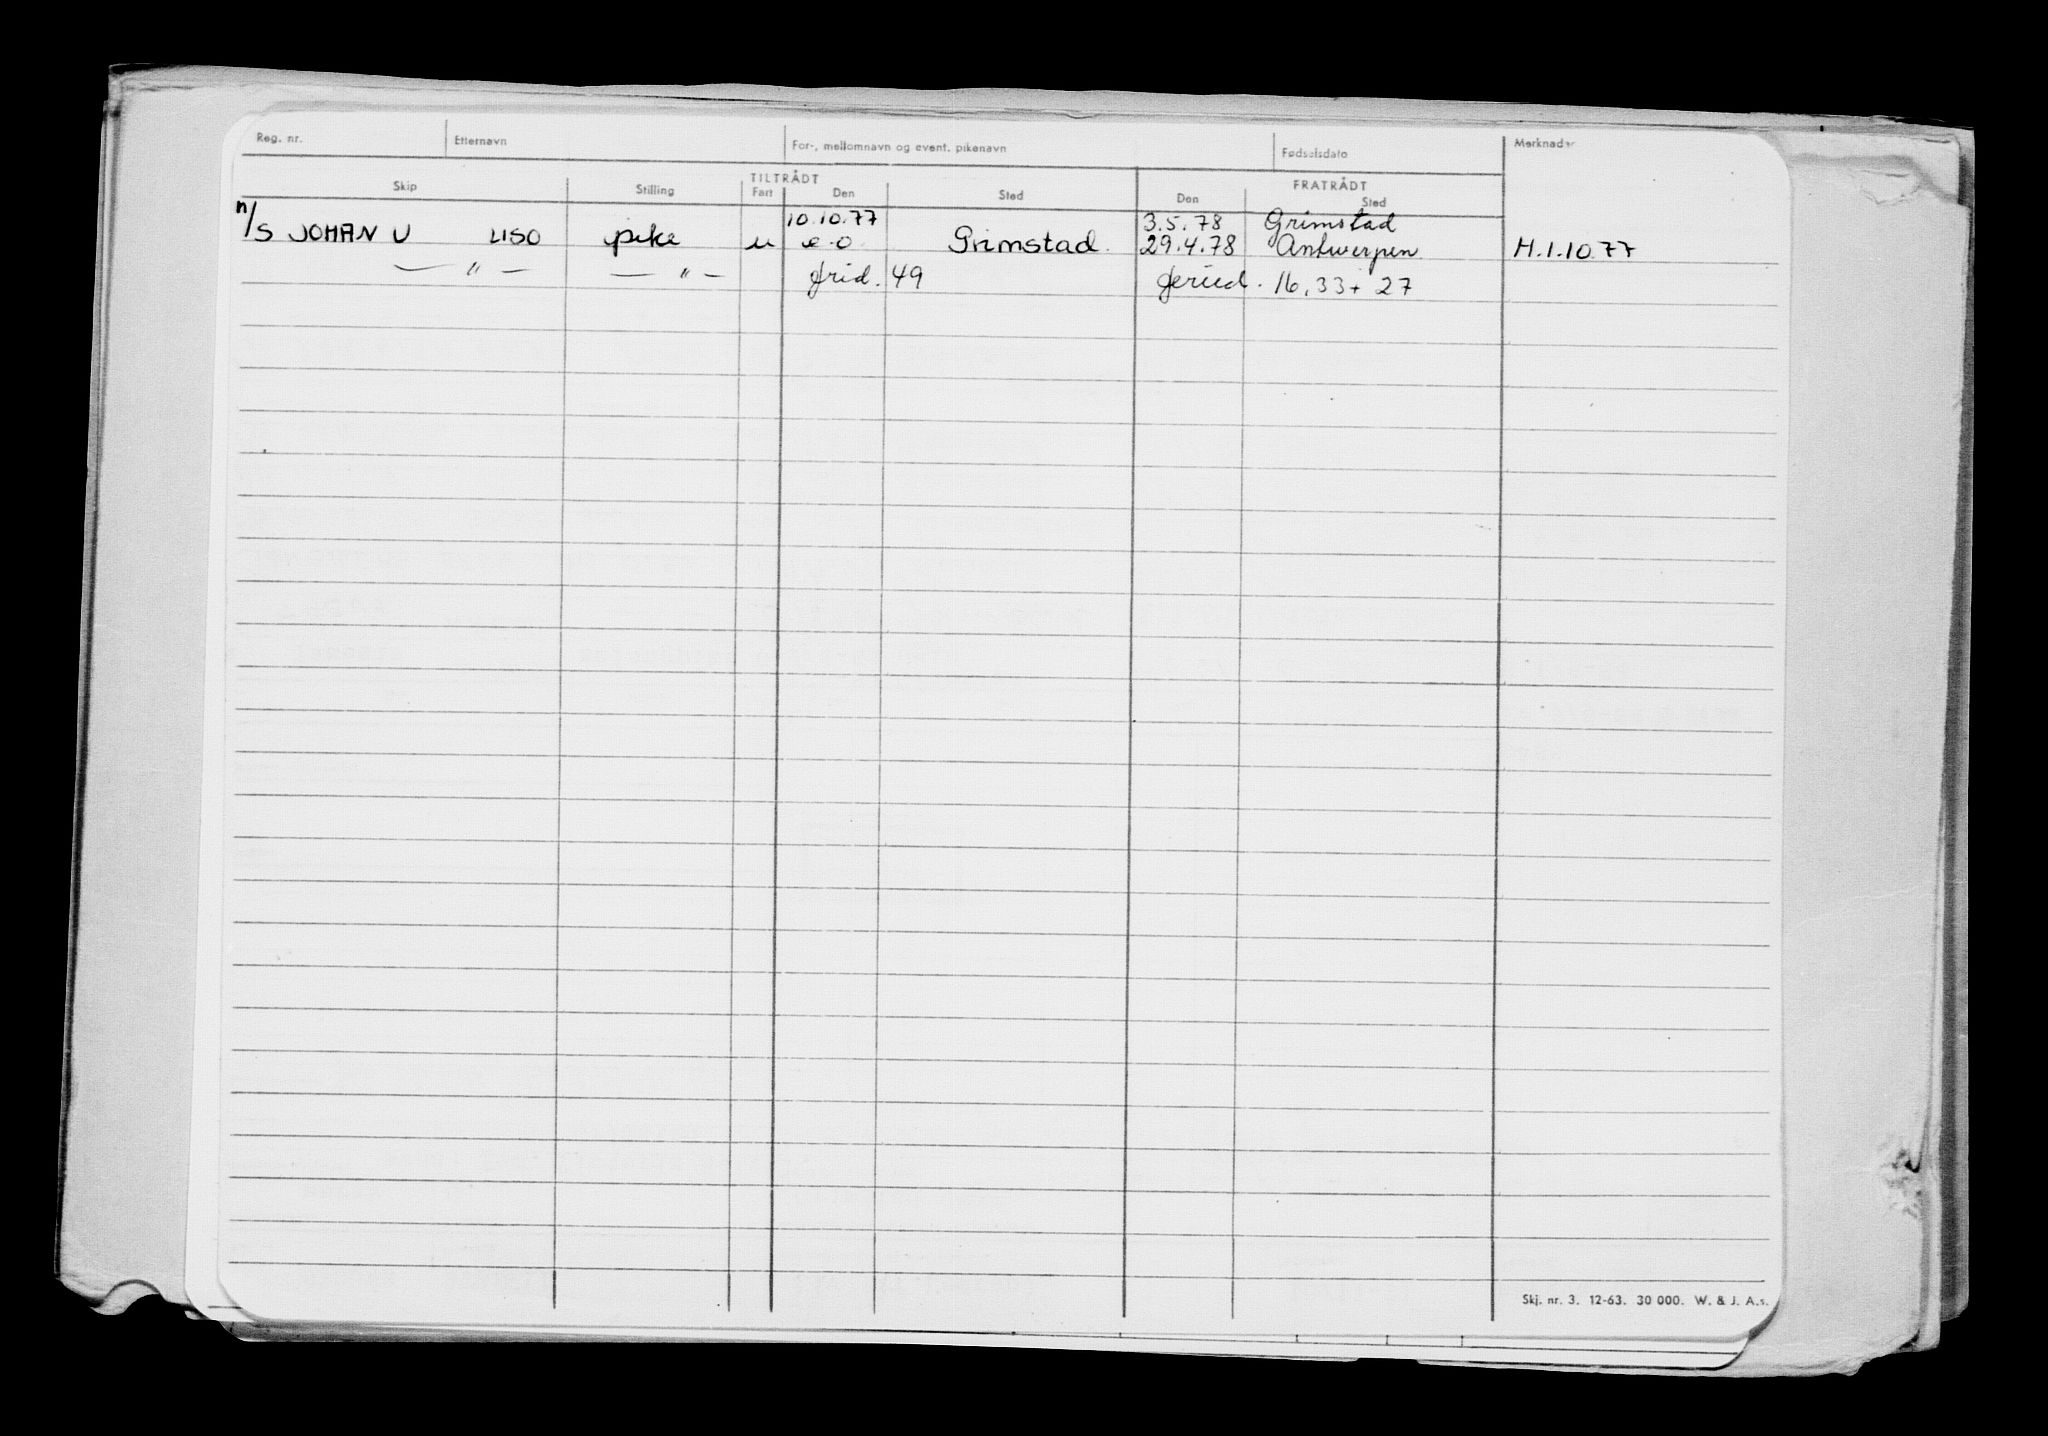 Reg. nr. Etternavn For-, mellomnavn og event. pikenavn Fødselsdato Merknader
TILTRÅDT FRATRÅDT
Skip Stilling Fart Den Sted Den Sted
10.10.77 3.5.78 Grimstad
M/S JOHAN U LISO pike u e.o. Grimstad. 29.4.78 Antwerpen H.1.10.77
— " — — " — frid. 49 feried. 16,33 + 27
Skj. nr. 3. 12-63. 30 000. W. & J. A.s.